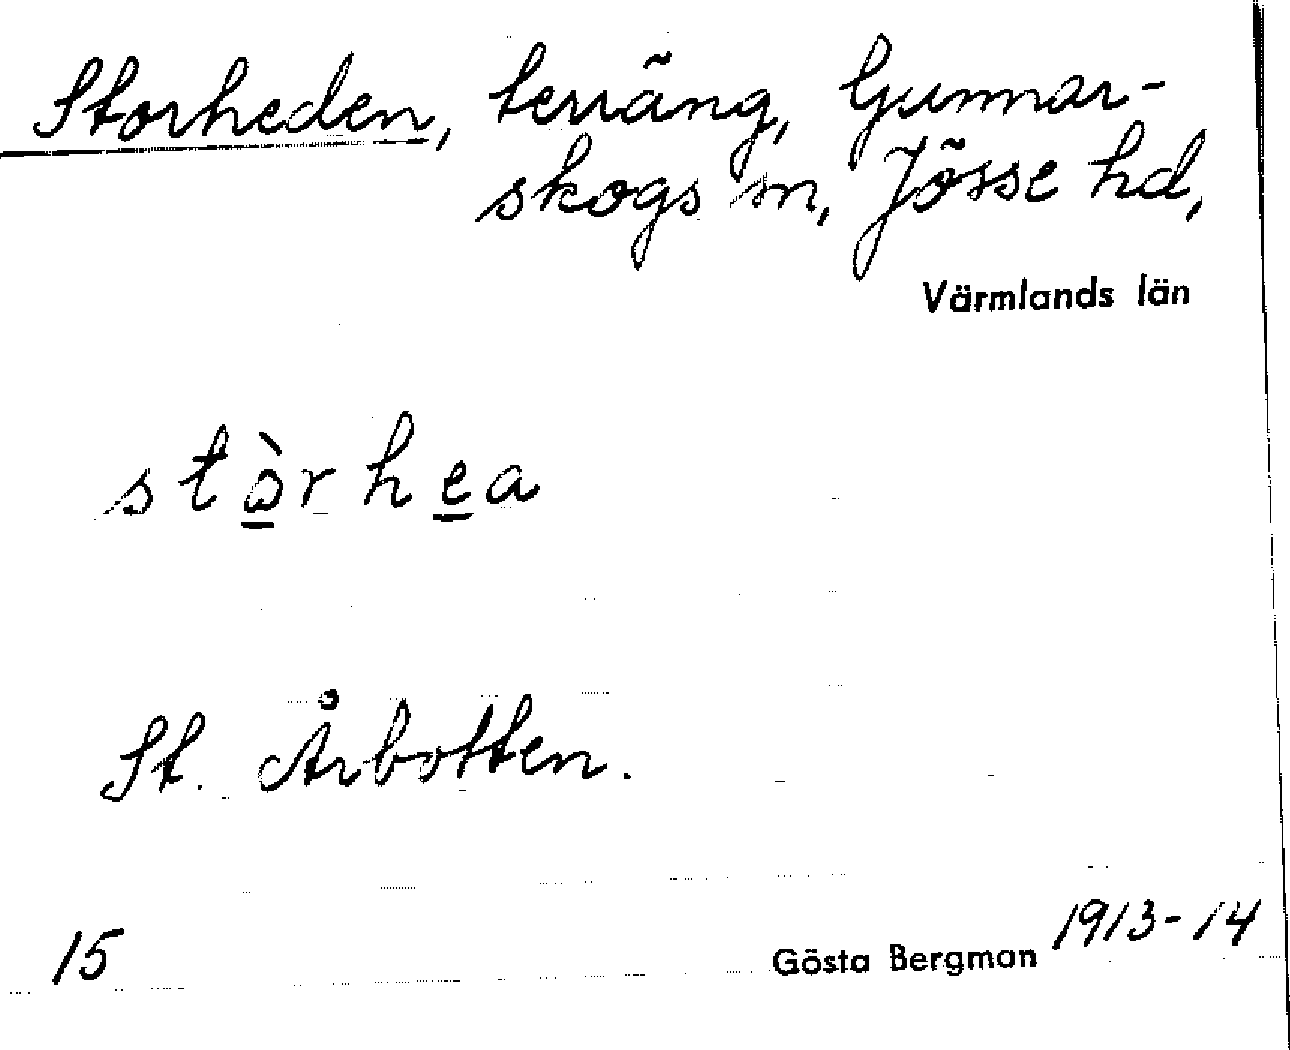 Storheden, terräng, Gunnar-
skogs sn, Jösse hd,
Värmlands län
stòrhea
St. Årbotten.
15 Gösta Bergman 1913-14